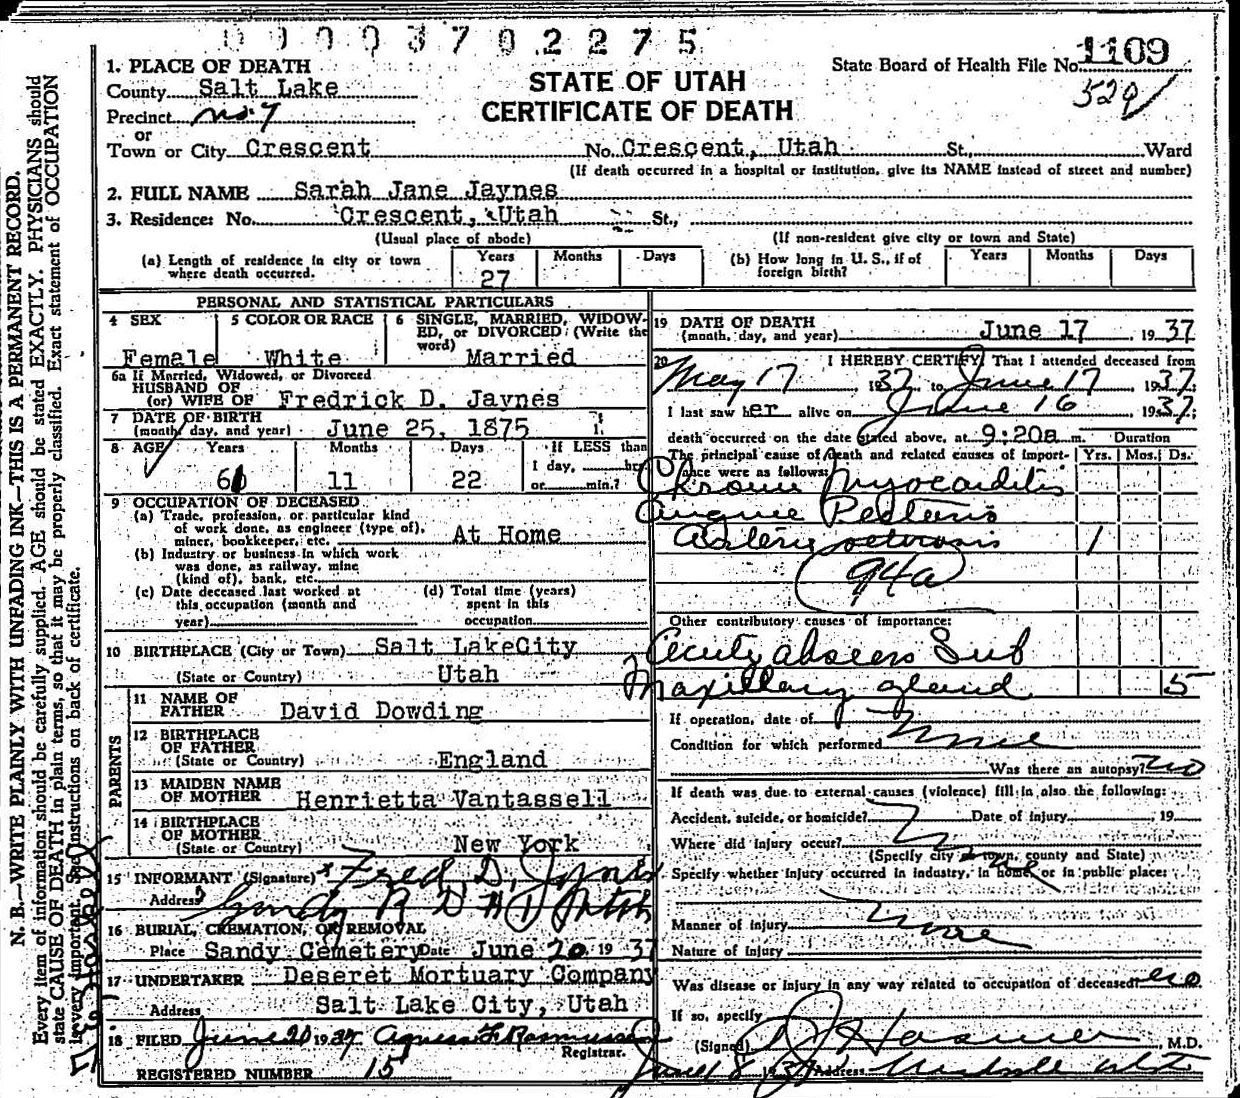 00003702275
1. PLACE OF DEATH
County Salt Lake
Precinct no. 7
or
Town or City Crescent
STATE OF UTAH
CERTIFICATE OF DEATH
State Board of Health File No. 1109
529
No. Crescent, Utah St., Ward
(If death occurred in a hospital or institution, give its NAME instead of street and number)
2. FULL NAME Sarah Jane Jaynes
3. Residence: No. Crescent, Utah St.,
(Usual place of abode) (If non-resident give city or town and State)
(a) Length of residence in city or town where death occurred. Years 27 Months Days
(b) How long in U. S., if of foreign birth? Years Months Days
PERSONAL AND STATISTICAL PARTICULARS
4 SEX Female
5 COLOR OR RACE White
6 SINGLE, MARRIED, WIDOWED, or DIVORCED (Write the word) Married
6a If Married, Widowed, or Divorced
HUSBAND OF
(or) WIFE OF Fredrick D. Jaynes
7 DATE OF BIRTH
(month, day, and year) June 25, 1875
8 AGE Years 61 Months 11 Days 22 If LESS than
1 day, hr.
or min.?
9 OCCUPATION OF DECEASED
(a) Trade, profession, or particular kind
of work done, as engineer (type of),
miner, bookkeeper, etc. At Home
(b) Industry or business in which work
was done, as railway, mine
(kind of), bank, etc.
(c) Date deceased last worked at
this occupation (month and
year)
(d) Total time (years)
spent in this
occupation
10 BIRTHPLACE (City or Town) Salt LakeCity
(State or Country) Utah
PARENTS
11 NAME OF
FATHER David Dowding
12 BIRTHPLACE
OF FATHER
(State or Country) England
13 MAIDEN NAME
OF MOTHER Henrietta Vantassell
14 BIRTHPLACE
OF MOTHER
(State or Country) New York
15 INFORMANT (Signature) Fred D. Jynes
Address Sandy R D # 1 Utah
16 BURIAL, CREMATION, OR REMOVAL
Place Sandy Cemetery Date June 20 1937
17 UNDERTAKER Deseret Mortuary Company
Address Salt Lake City, Utah
18 FILED June 20 1937 Agness F. Rasmussen
Registrar.
REGISTERED NUMBER 15
19 DATE OF DEATH
(month, day, and year) June 17 1937
20 I HEREBY CERTIFY, That I attended deceased from
May 17 1937 to June 17 1937
I last saw her alive on June 16 1937;
death occurred on the date stated above, at 9:20a m.
The principal cause of death and related causes of importance were as follows:
Duration
Yrs. Mos. Ds.
Chronic Myocarditis
Angine Pectoris
Arteriosclerosis 1
94a
Other contributory causes of importance:
abscess Sub
Maxillary gland 5
If operation, date of
Condition for which performed None
Was there an autopsy? no
If death was due to external causes (violence) fill in also the following:
Accident, suicide, or homicide? Date of injury 19
Where did injury occur?
(Specify city or town, county and State)
Specify whether injury occurred in industry, in home, or in public place:
Manner of injury None
Nature of Injury
Was disease or injury in any way related to occupation of deceased? no
If so, specify
(Signed) M.D.
June 18 1937 Address Midvale Utah
N. B.—WRITE PLAINLY WITH UNFADING INK—THIS IS A PERMANENT RECORD.
Every item of information should be carefully supplied. AGE should be stated EXACTLY. PHYSICIANS should
state CAUSE OF DEATH in plain terms, so that it may be properly classified. Exact statement of OCCUPATION
is very important. See instructions on back of certificate.